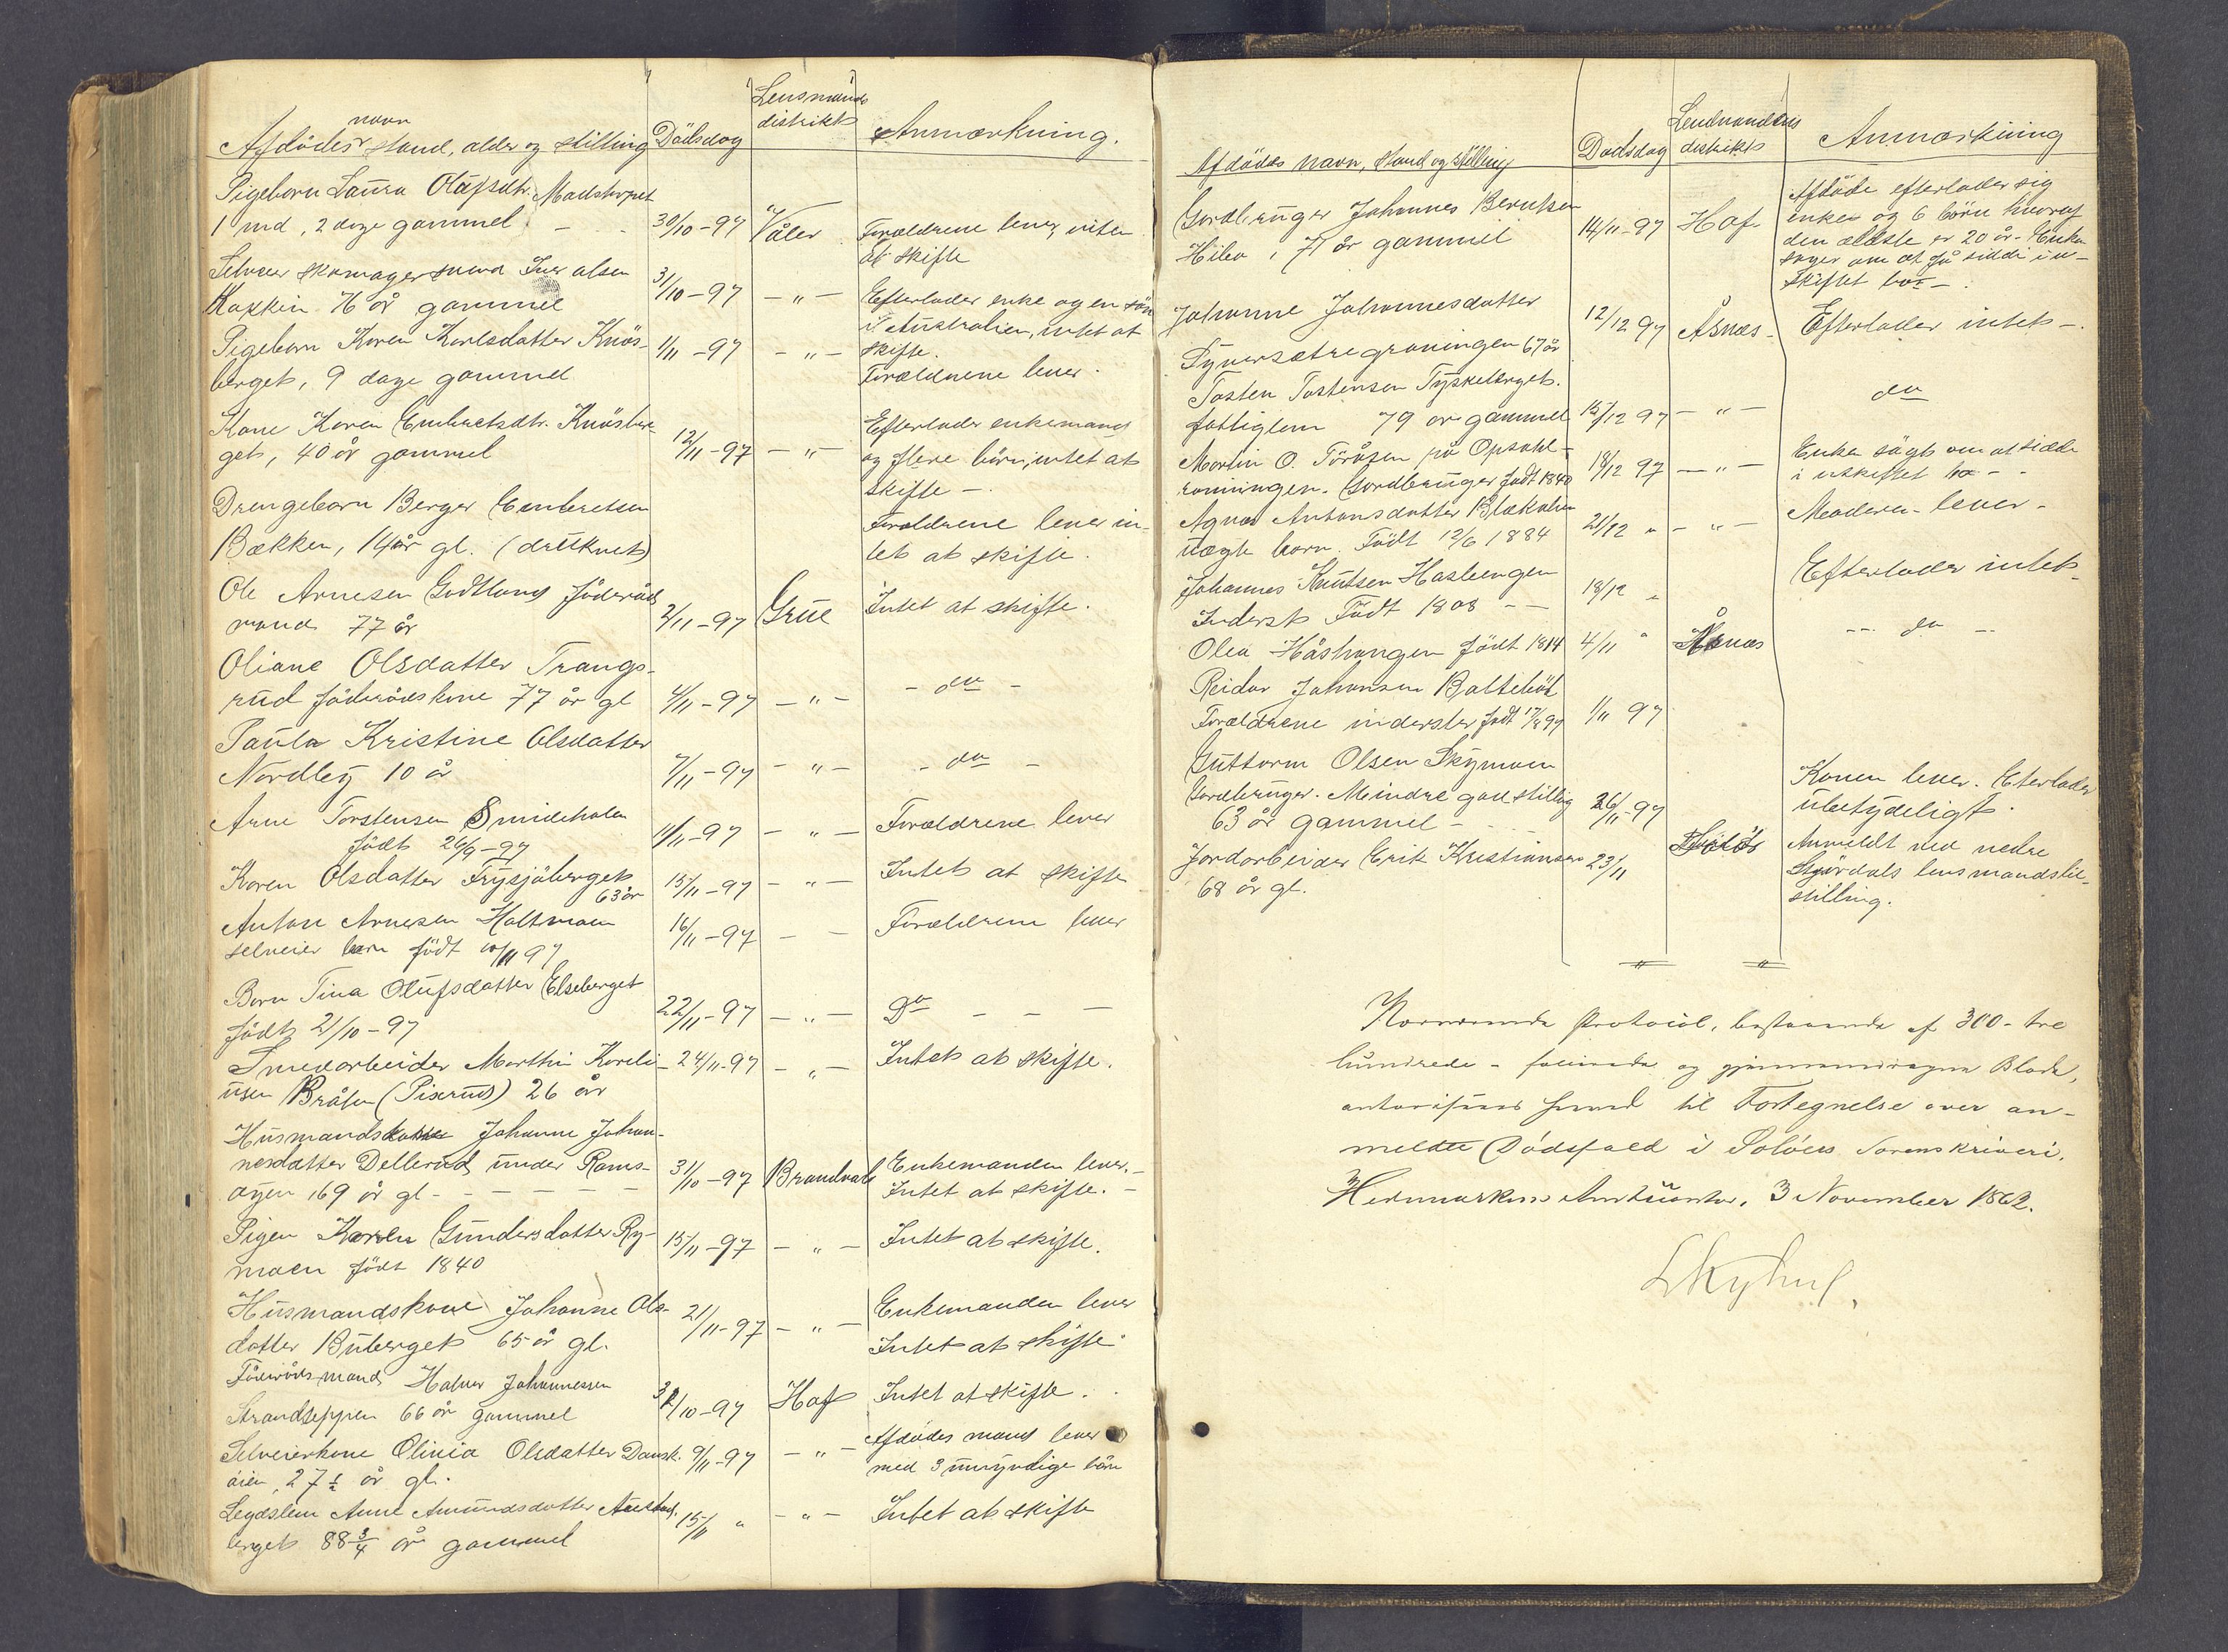 navn
Afdødes stand, alder og stilling
Dödsdag
Lensmands
distrikt
Anmærkning.
Pigebarn Laura Olafsdtr. Madstorpet
1 md, 2 dage gammel. - -
30/10-97
Våler
Forældrene lever, intet
at skifte
Selveier skomagersvend Iver Olsen
Kopkin 76 år gammel
31/10-97
- " -
Efterlader enke og en sön
i Australien, intet at
skifte.
Pigebarn Karen Karlsdatter Knös-
berget, 9 dage gammel
1/11-97
- " -
Forældrene lever.
Kone Karen Embretsdtr. Knösber-
get, 40 år gammel
12/11-97
- " -
Efterlader enkemand
og flere börn, intet at
skifte -.
Drengebarn Berger Embretsen
Bækken, 14 år gl. (druknet)
Forældrene lever in-
tet at skifte.
Ole Arnesen Godtland föderåds
mand 77 år
2/11-97
Grue
Intet at skifte.
Oliane Olsdatter Trangs-
rud föderådskone 77 år gl
4/11-97
- " -
- do -
Paula Kristine Olsdatter
Nordby 10 år
7/11-97
- " -
- do -
Arne Torstensen Smideholen
födt 26/9-97
11/11-97
- " -
Forældrene lever
Karen Olsdatter Frysjöberget
63 år
15/11-97
- " -
Intet at skifte
Anton Arnesen Holtmoen
selveier barn födt 10/11 97
16/11-97
- -
Forældrene lever
Barn Tina Olufsdatter Elseberget
födt 21/10-97
22/11-97
- " -
Do - - -
Smedarbeider Marthin Korneli-
usen Bråten (Pixrud) 26 år
24/11-97
- " -
Intet at skifte.
Husmandskone Johanne Johan-
nesdatter Dellerud under Rams-
øyen, 69 år gl - - - - -
31/10-97
Brandval
Enkemanden lever. -
Intet at skifte. -
Pigen Karen Gundersdatter Ry-
moen födt 1840
15/11-97
- " -
Intet at skifte.
Husmandskone Johanne Ols-
datter Buberget 65 år gl.
21/11-97
- " -
Enkemanden lever
Intet at skifte.
Föderåds mand Halvor Johannessen
Strandseppen 66 år gammel
31/10-97
Hof
Intet at skifte.
Selveierkone Olivia Olsdatter Dansk-
øien, 27 1/2 år gl.
9/11-97
- " -
Afdødes mand lever
med 3 umyndige börn
Legdslem Anne Amundsdatter
berget 88 3/4 år gammel
15/11 "
- " -
Intet at skifte
Afdödes navn, stand og stilling
Dødsdag
Lensmandens
distrikt
Anmærkning
Gårdbruger Johannes Berntsen
Hilen, 71 år gammel
14/11-97
Hof-
Afdöde efterlader sig
enke og 6 börn hvoraf
den ældste er 20 år. Enken
söger om at få sidde i u-
skiftet bo -.
Johanne Johannesdatter
Tynersætregroningen 67 år
12/12 97
Åsnæs-
Efterlader intet -.
Tosten Tostensen Tyskeberget.
fattiglem 79 år gammel
15/12 97
- " -
do
Martin O. Töråsen på Opsahl-
rønningen. Gårdbruger födt 1840
18/12 97
- " -
Enken sögt om at sidde
i uskiftet bo - -
Agnes Antonsdatter Blækolen
uægte barn. Födt 12/6 1884
21/12 "
- " -
Moderen lever -
Johannes Knutsen Haslengen
Inderst Födt 1808 - -
18/12 "
Efterlader intet-
Olea Håshangen födt 1814
4/11 "
Åsnæs
-- do --
Reidar Johansen Baltebøl
Forældrene inderster födt 17/8 97
1/11 97
Guttorm Olsen Skymoen
Gårdbruger. Mindre god stilling
63 år gammel -
26/11-97
Konen lever. Eterlader
ubetydeligt.
Jordarbeider Erik Kristiansen
68 år gl.
23/11
Anmeldt ved nedre
Stjørdals lensmandsbe-
stilling.
Nærværende Protocol, bestaaende af 300 - tre
hundrede - folierede og gjennemdragne Blade,
autoriseres herved til Fortegnelse over an-
meldte Dødsfald i Soløers Sorenskriveri.
Hedemarkens Amtscontor, 3 November 1862.